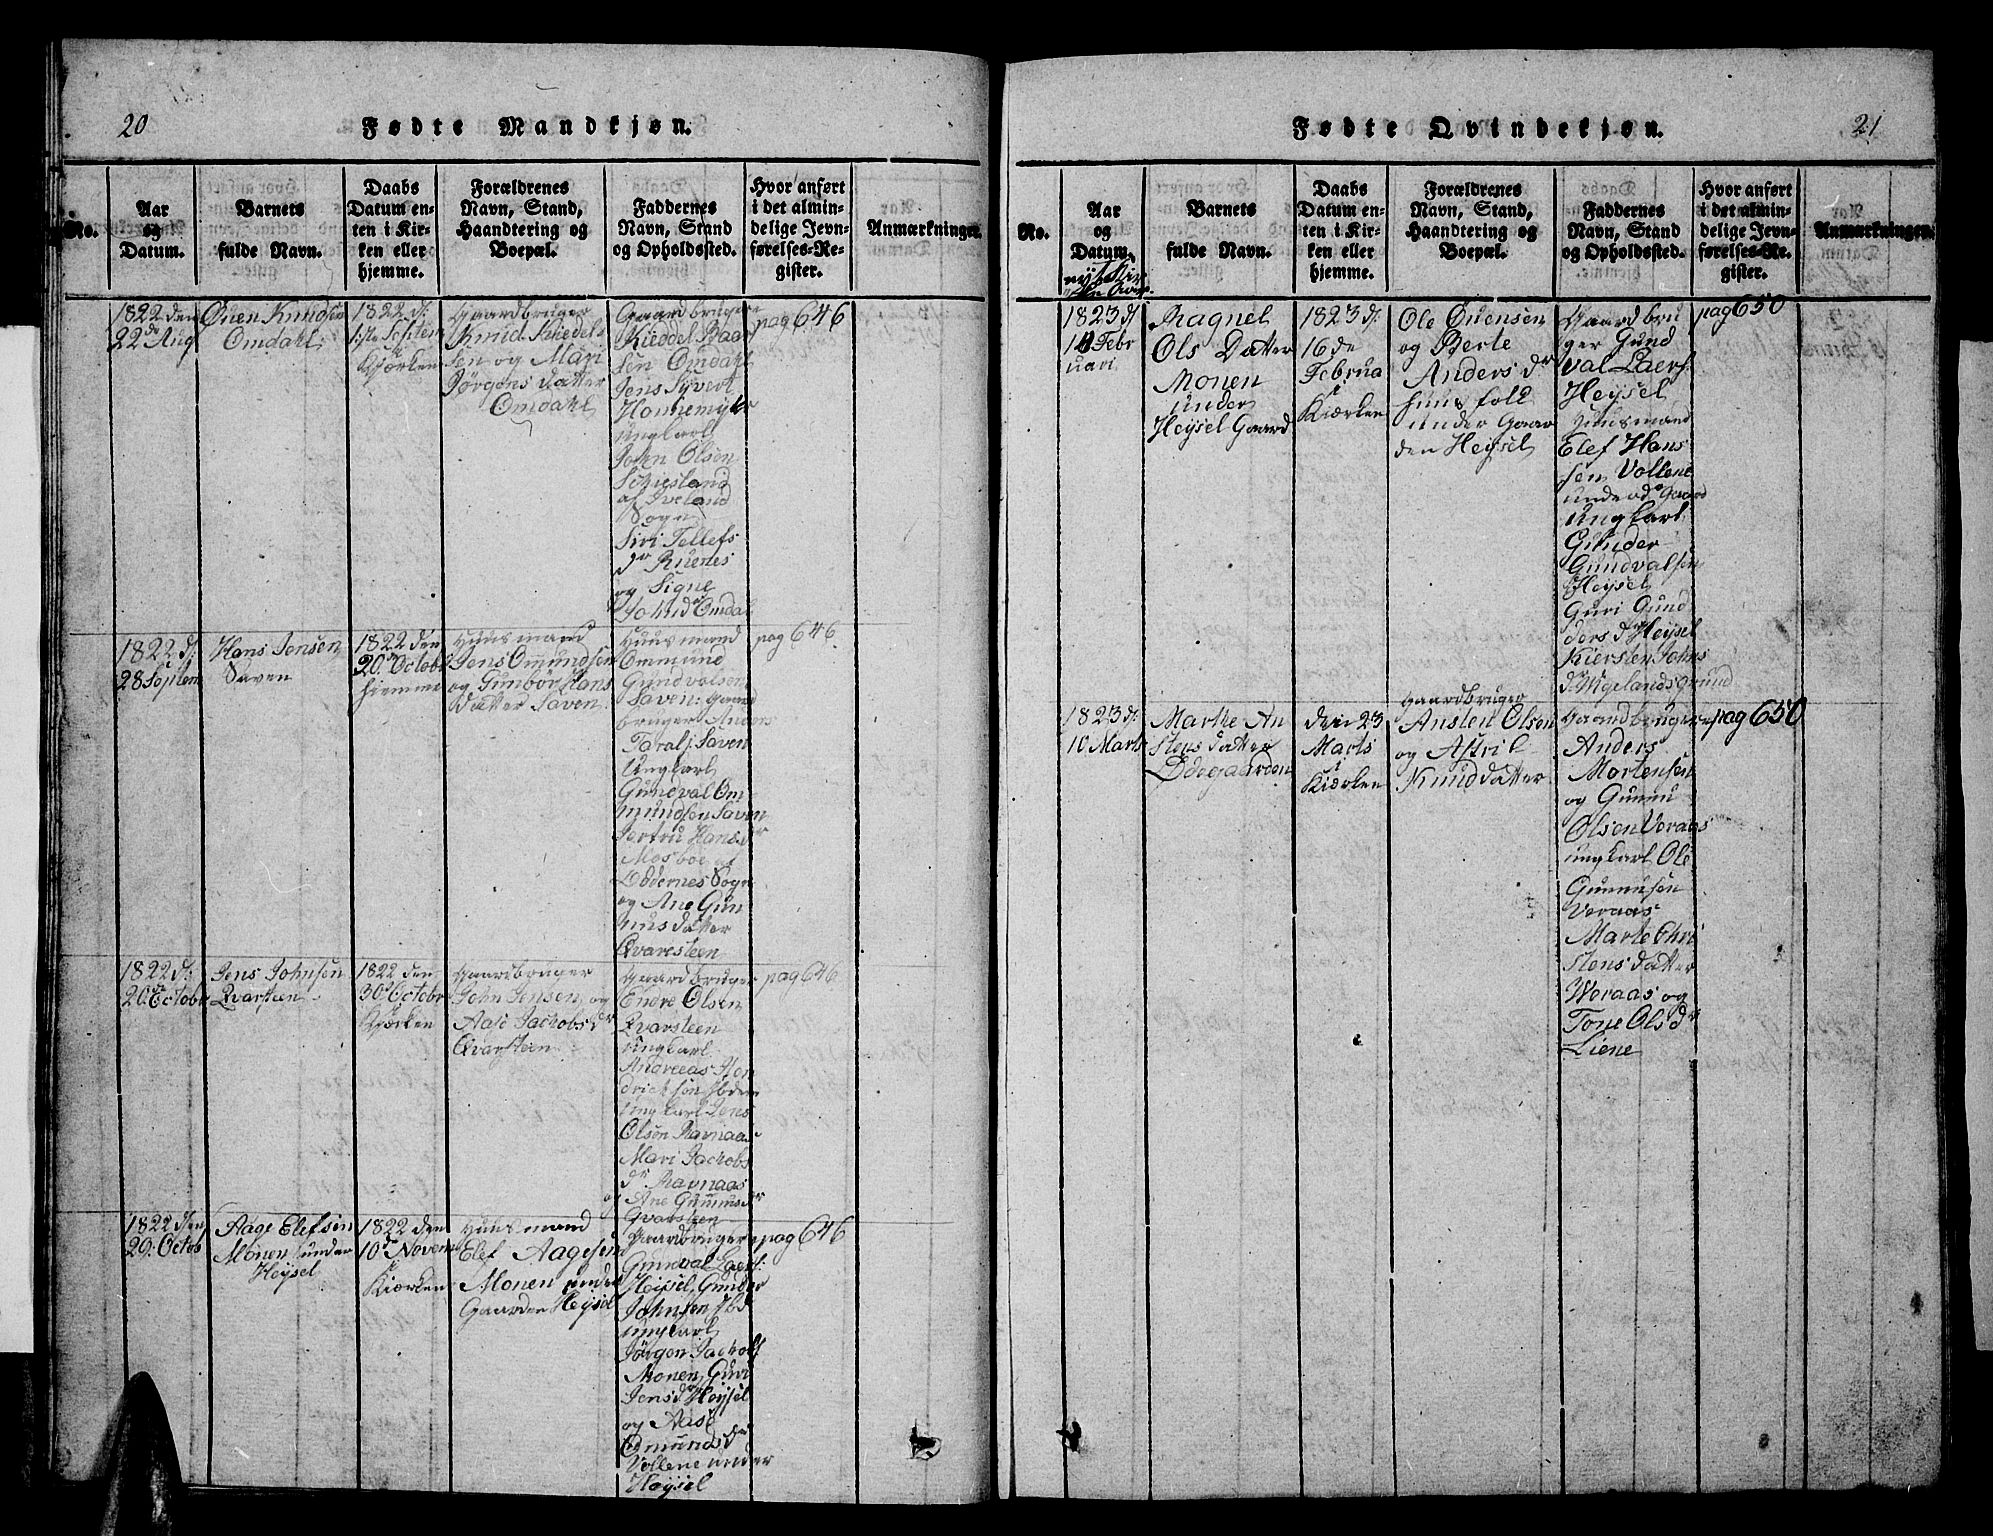 20
Fødte Mandkjøn.
No.
Aar
og
Datum.
Barnets
fulde Navn.
Daabs
Datum en-
ten i Kir-
ken eller
hjemme.
Forældrenes
Navn, Stand,
Haandtering og
Boepæl.
Faddernes
Navn, Stand
og Opholdssted.
Hvor anført
i det almin-
delige Jevn-
førelses-Re-
gister.
Anmærkninger.
1822 den
22de Aug
Ouen Knudsen
Omdahl
1822 d:
1ste Septem
i
Kjørken
Gaardbruger
Knud Kiedels
sen og Mari
Jørgens datter
Omdahl
Gaardbruger
Kieddel Baar
sen Omdahl
Jens Syvert
Honnemyhr
ungkarl
John Olsen
Schiesland
af Iveland
Sogn
Siri Tellefs
dr Ruenes
og Signe
Johnsd Omdal
pag 646
1822 d:
28 Septem
Hans Jensen
Saven
1822 den
20de Octobr
hiemme
Huusmand
Jens Ommundsen
og Gunbor Hans
datter Saven.
Huusmand
Ommund
Gundvalsen
Saven: Gaard
bruger Anders
Taralj: Saven
Ungkarl
Gundval Om
mundsen Saven
Jertru Hansdr
Mosboe af
Oddernes Sogn
og Ane Gun
nus datter
Qvaresteen
pag 646
1822 d:
20de Octobr
Jens Johnsen
Qvarsteen
1822 den
30de Octobr
i
Kjørken
Gaardbruger
John Jensen og
Aase Jachobs dr
Qvarsteen
Gaardbruger
Endre Olsen
Qvarsteen
ungkarl
Andreeas Hen
drichsen Ibdem
ungkarl Jens
Olsen Ravnaas
Mari Jachobs
dr Ravnaas
og Ane Gunnusdr
Qvarsteen
pag 646
1822 den
29. Octob
Aage Elefsen
Monen under
Heysel
1822 den
10de Novem
i
Kiørken
Huusmand
Elef Aagesen
Monen under
Gaarden Heysel
Gaardbruger
Gundval Laers:
Heysel, Gunder
Johnsen Ibd
ungkarl
Jørgen Jachobs
Monen, Guri
Jensdr Heysel
og Aase
Omunds dr
Vollene under
Heysel
pag 646
21
Fødte Qvindekjøn.
No.
Aar
og
Datum.
Barnets
fulde Navn.
Daabs
Datum en-
ten i Kir-
ken eller
hjemme.
Forældrenes
Navn, Stand,
Haandtering og
Boepæl.
Faddernes
Navn, Stand
og Opholdssted.
Hvor anført
i det almin-
delige Jevn-
førelses-Re-
gister.
Anmærkninger.
1823 d:
14 Febr
uari.
Ragnel
Ols Datter
Monen
under
Heysel Gaard
1823 d:
16 de
Februa
i
Kiørken
Ole Ouensen
og Berte
Anders dr
huusfolk
under Gaar
den Heysel
Gaardbru
ger Gund
val Laers:
Heysel
Huusmand
Elef Hans
sen Vollene
under do Gaard
ungkarl
Gunder
Gundvalsen
Heysel
Guri Gund
ders dr Heysel
Kiersten Johns
dr Vigelandsgrund
pag 650
1823 d:
10 Marts
Marthe An
stens datter
Ødegaarden
den 23
Marts
i
Kiørken
Gaardbruger
Ansten Olsen
og Astril
Knuddatter
Gaardbruger
Anders
Mortensen
og Gunnu
Olsen Veraas
ungkarl Ole
Gunnusen
Veraas
Marte Chri
stens datter
Weraas og
Tone Olsdr
Liene
pag 650